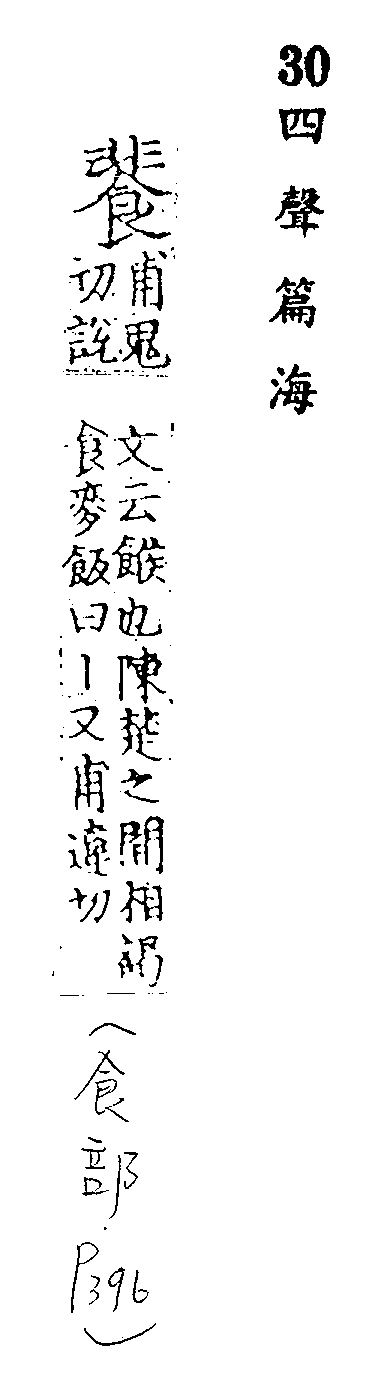 30四聲篇海
餥
甫鬼
切説
文云餱也陳楚之間相謁
食麥飯曰丨又甫違切
(食部.P396)